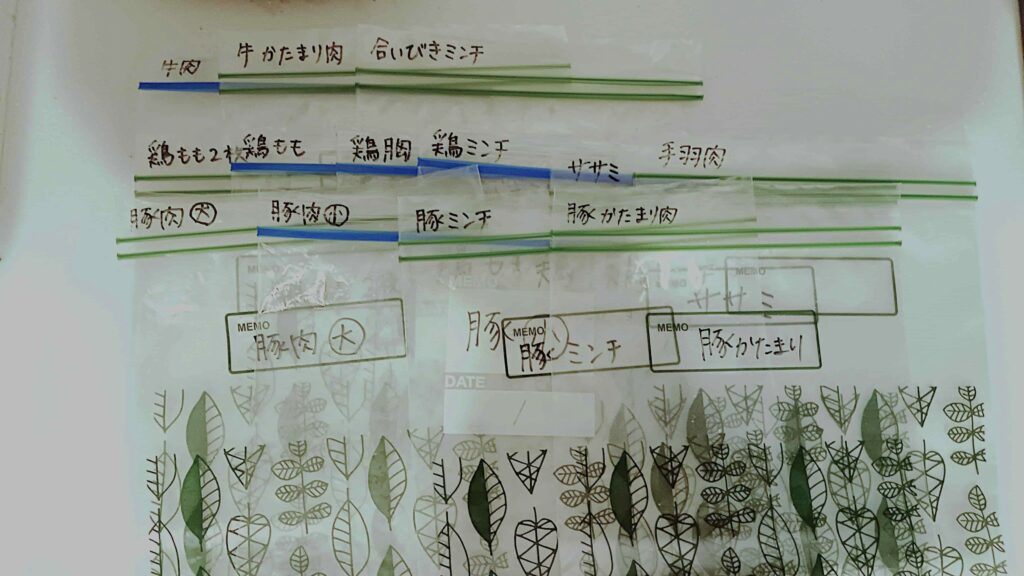 牛肉 牛かたまり肉 合いびきミンチ
鶏もも2枚 鶏もも 鶏胸 鶏ミンチ ササミ 手羽肉
豚肉 大 豚肉 小 豚ミンチ 豚かたまり肉
MEMO
MEMO
ササミ
MEMO
豚肉 大
豚
MEMO
豚ミンチ
MEMO
豚かたまり
DATE
/